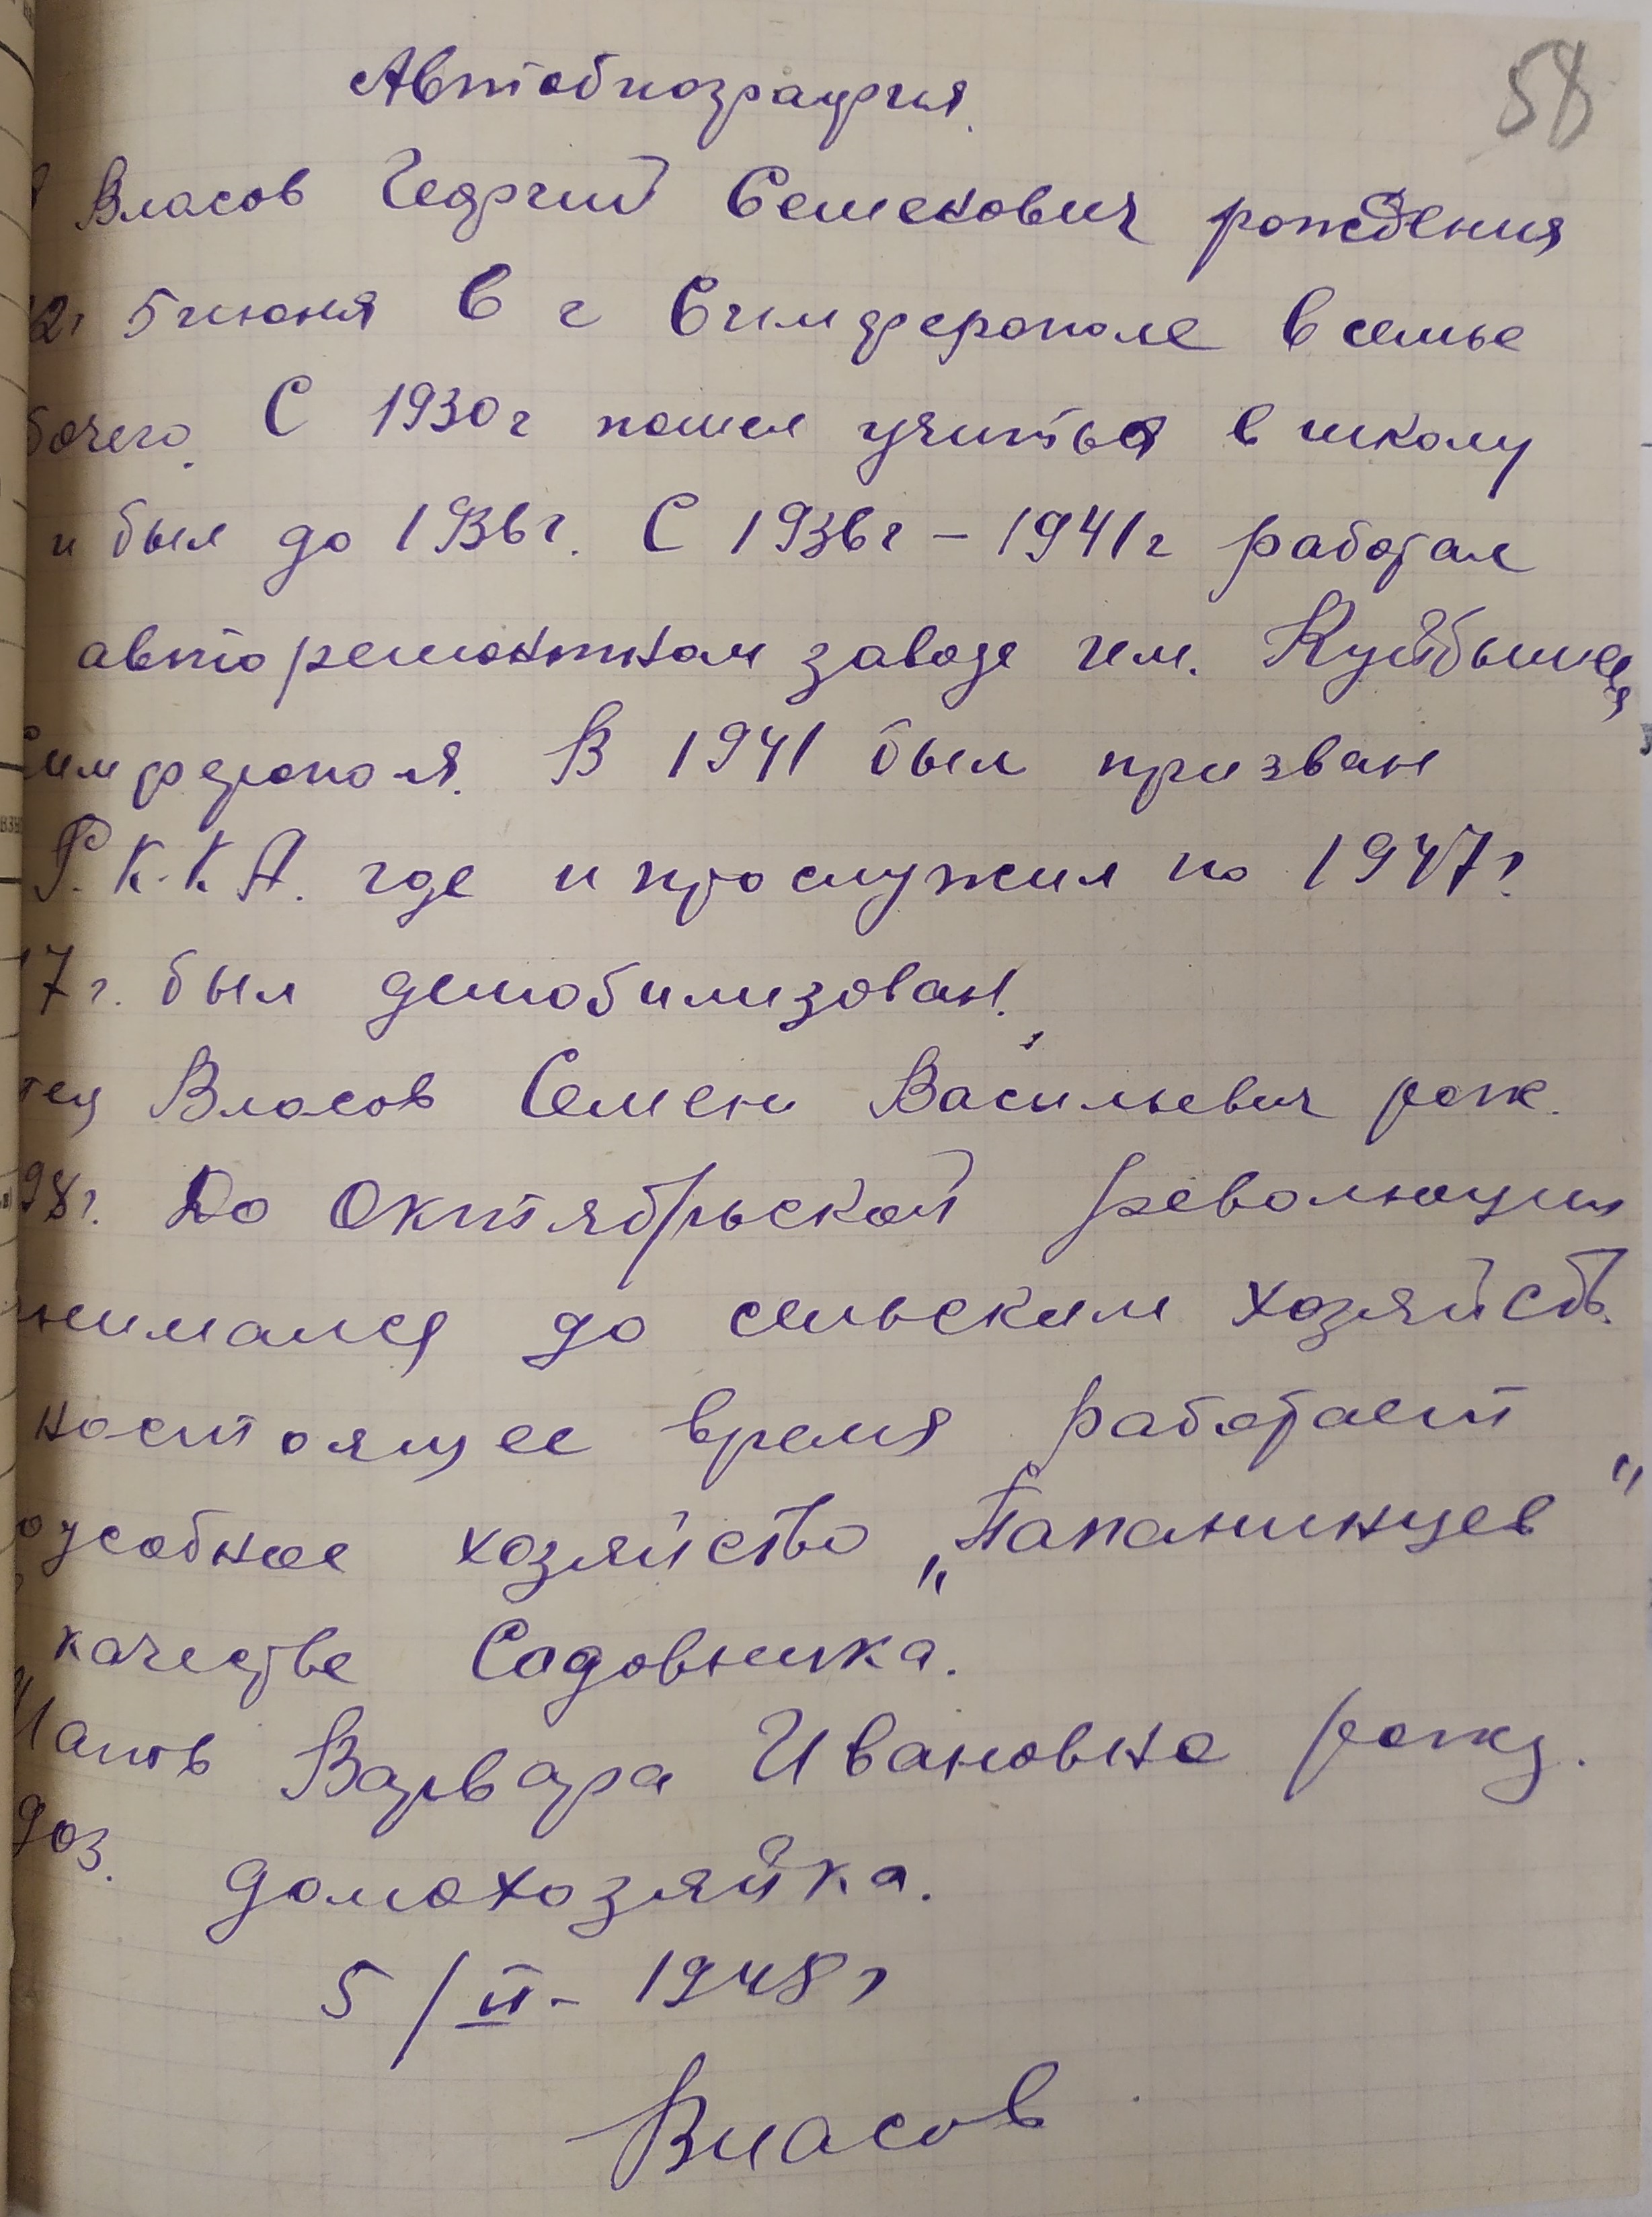 Автобиография.
58
Власов Георгий Семенович рождения
2г 5 июня в г Симферополе в семье
бочего. С 1930г пошел учиться в школу
и был до 1936г. С 1936г – 1941г работал
авторемонтном заводе им. Куйбышева
Симферополя. В 1941 был призван
Р.К.К.А. где и прослужил по 1947г.
7г. был демобилизован.
тец Власов Семен Васильевич рож.
98г. До Октябрьской революции
нимался до сельским хозяйств.
настоящее время работает
одсобное хозяйство „Папанинцев"
качестве Садовника.
Мать Варвара Ивановна рожд.
903. домохозяйка.
5/II – 1948г
Власов